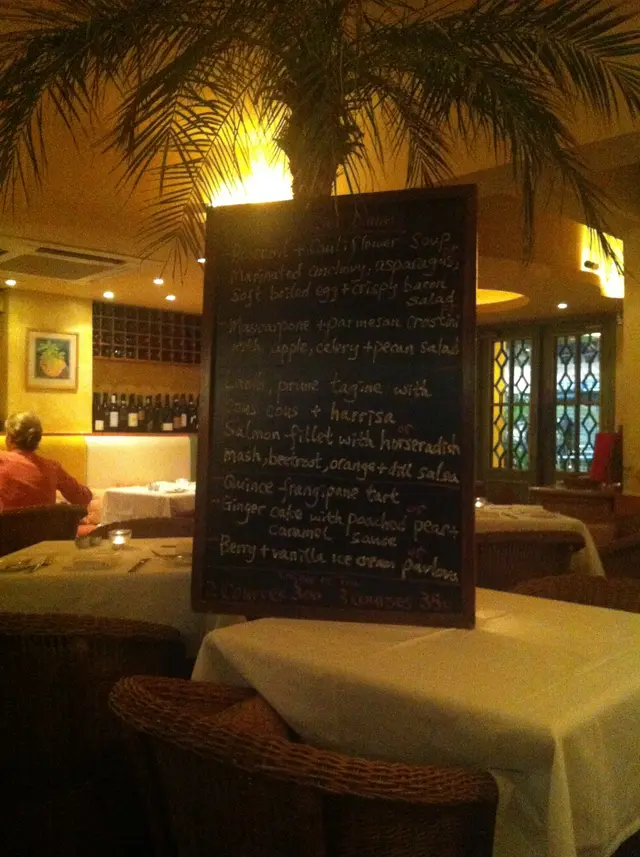 Broccoli + Cauliflower Soup,
Marinated anchovy, asparagus,
Soft boiled egg + crispy bacon
salad
- Mascarpone + parmesan crostini
with apple, celery + pecan salad
Lamb, prune tagine with
cous cous + harrisa
or
Salmon fillet with horseradish
mash, beetroot, orange + dill salsa
- Quince frangipane tart
or
- Ginger cake with poached pear +
caramel sauce
or
Berry + vanilla ice cream pavlova
2 COURSES 300 3 COURSES 350